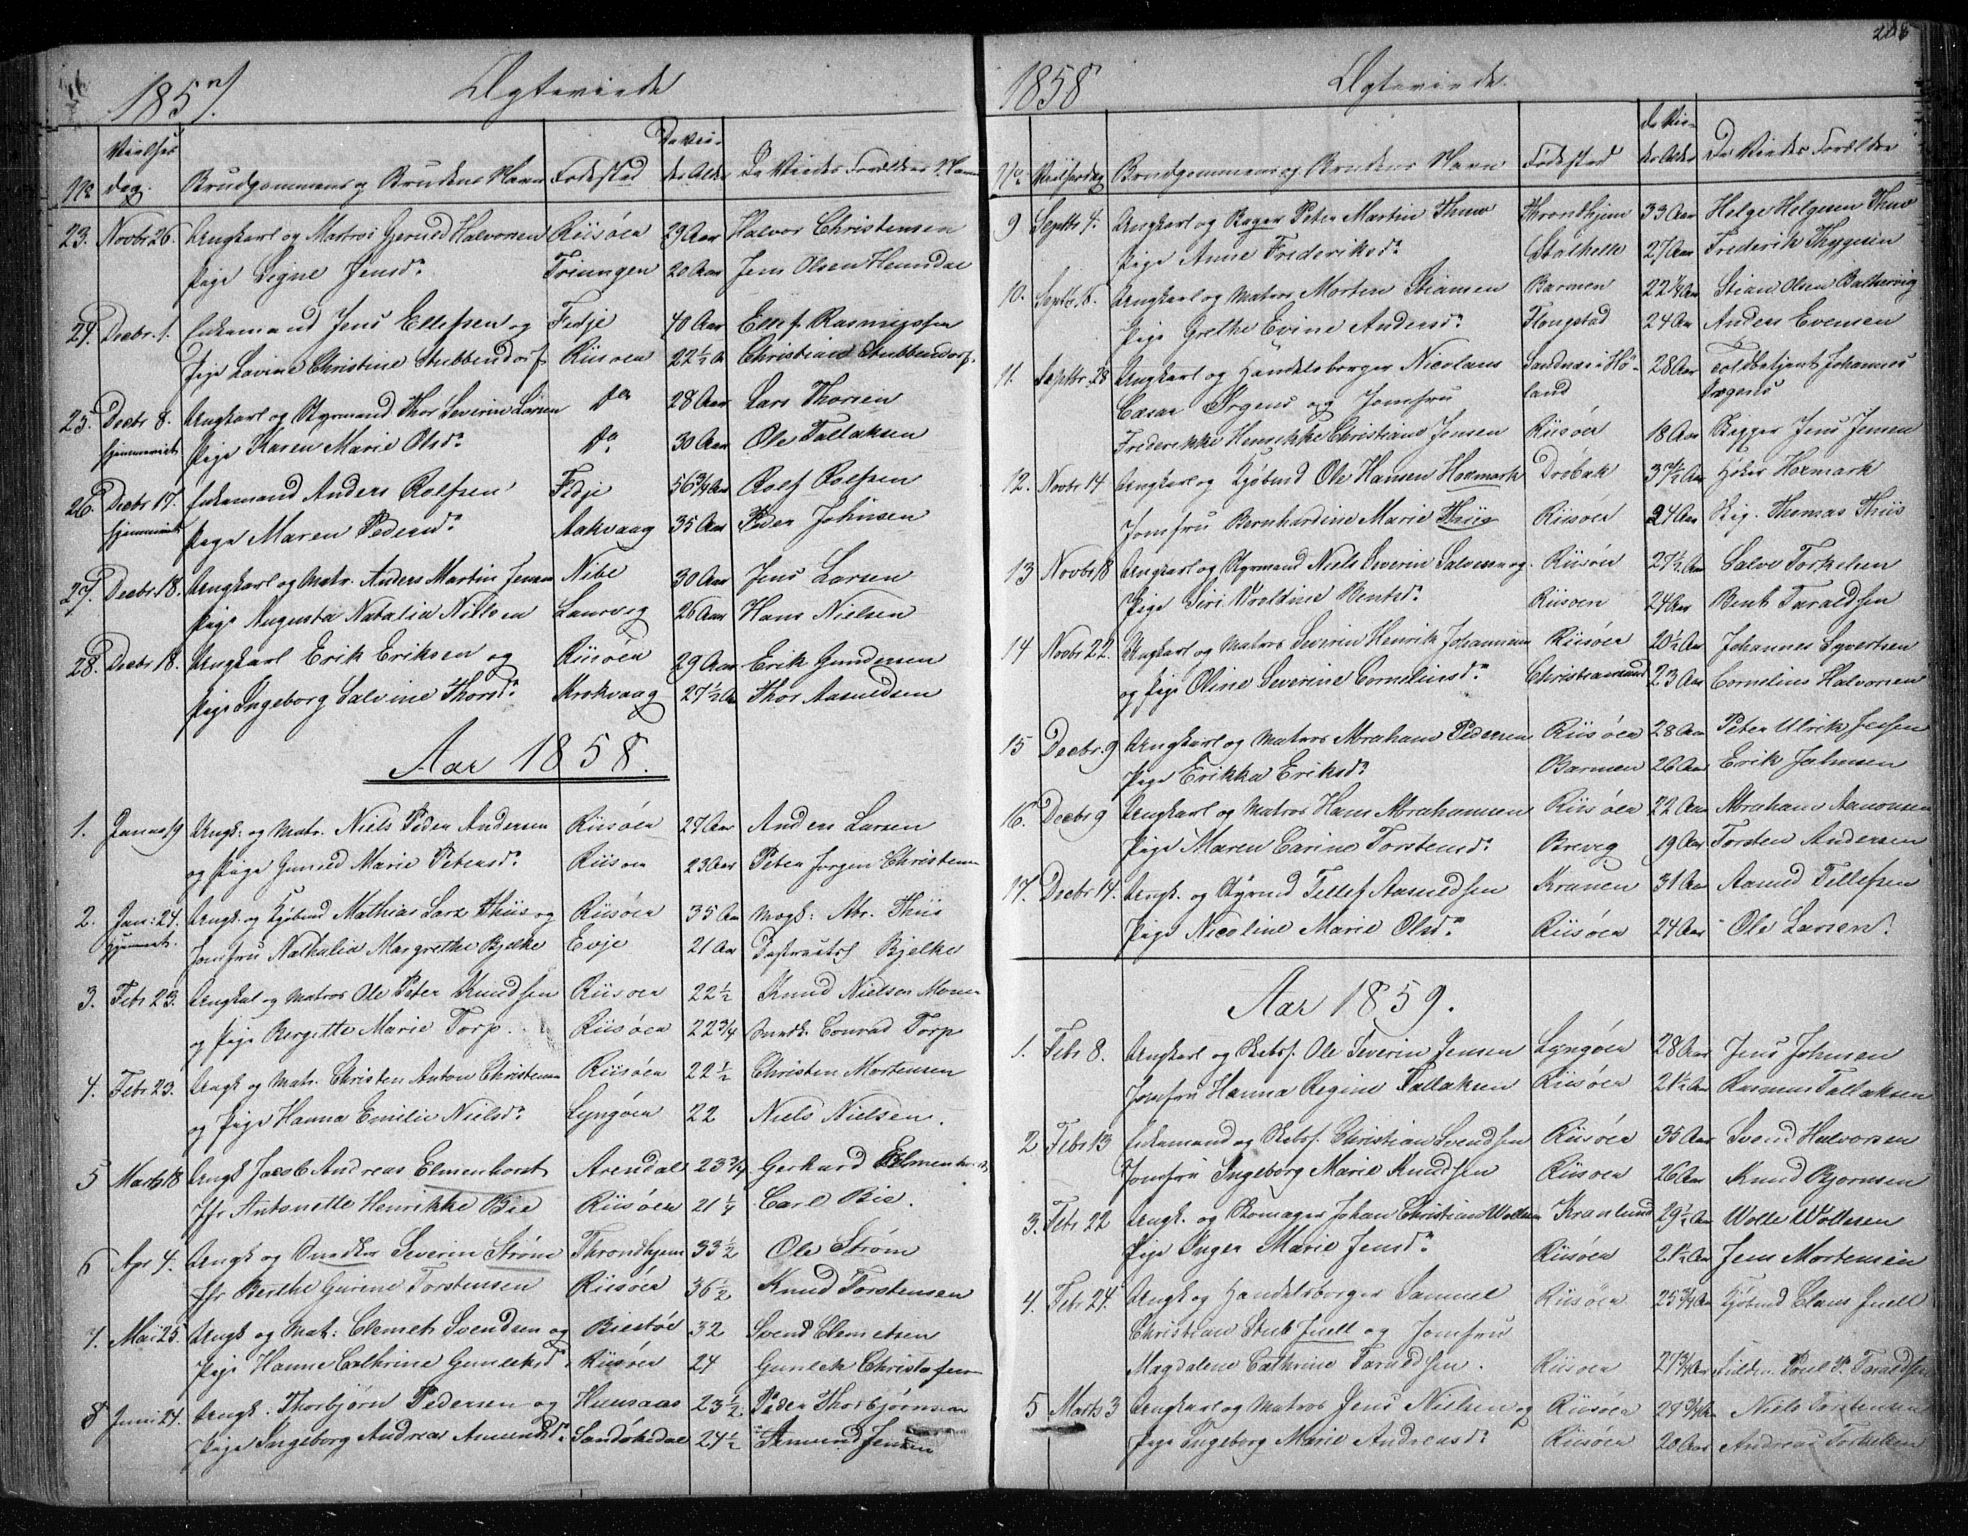 1857.
Ægteviede
No
Vielses
dag.
Brudgommens og Brudens Navn
Fødested
De Vie-
des Alder
De Viedes Forældres Navn
23. Novbr 26. Ungkarl og Matros Gjerud Halvorsen Riisøer 29 Aar Halvor Christensen
Pige Signe Jensd. 20 Aar Jens Olsen
24. Decbr. 1. Enkemand Jens Ellefsen og Fedje 40 Aar Ellef Rasmussen
Pige Lavine Christine Stubbendorf Riisøer 22½ A Christian Stubbendorf.
25. Decbr 8. Ungkarl og Styrmand Thor Severin Larsen do 28 Aar Lars Thorsen
hjemmeviet Pige Karen Marie Olsd. do 30 Aar Ole Tallaksen
26. Decbr 17. Enkemand Anders Rolfsen Fedje 56¾ Aar Rolf Rolfsen
hjemmeviet Pige Maren Pedersd. Aakvaag 35 Aar Peder Johnsen
27. Decbr. 18. Ungkarl og Matr. Anders Martin Jensen Nibe 30 Aar Jens Larsen
Pige Augusta Natalia Nielsen Laurvig 26 Aar Hans Nielsen
28. Decbr 18. Ungkarl Erik Eriksen og Riisøer 29 Aar Erik Gundersen
Pige Ingeborg Salvine Thorsd. Krokvaag 27½ A Thor Aanundsen
Aar 1858.
1. Januar 19 Ungk. og Matr. Niels Peder Andersen Riisøer 27 Aar Anders Larsen
og Pige Gunild Marie Petersd. Riisøer 23 Aar Peter Jørgen Christensen
2. Jan: 24. Ungk. og Kjøbmd Mathias Larz Thiis og Riisøer 35 Aar Thiis
hjemmev. Jomfru Nathalia Margrethe Bjelke Evje 21 Aar Bjelke
3. Febr 23. Ungkarl og Matros Ole Peter Knudsen Riisøer 22½ Knud Nielsen
og Pige Bergitte Marie Torp. Riisøer 22¾ Snedk. Conrad Torp
4. Febr 23. Ungk og Matr. Christen Anton Christensen Riisøer 22½ Christen Mortensen
og Pige Hanna Emilie Nielsd. Lyngøer 22 Niels Nielsen.
5 Marts 18 Ungk Jacob Andreas Elmenhorst Arendal 23¾ Gerhard Elmenhorst
Jfr Antonette Henrikke Bie Riisøer 21¼ Carl Bie.
6 Apr 4. Ungk og Snedker Severin Strøm Throndhjem 33½ Ole Strøm
Jfr Berthe Gurine Torstensen Riisøer 36½ Knud Torstensen
7. Mai 25. Ungk og Mat: Clemet Svendsen og 32 Svend Clemetsen
Pige Hanne Cathrine Gunleksd. Riisøer 24 Gunlek Christofersen
8 Juni 24. Ungk. Thorbjørn Pedersen og 23½ Peder Thorbjørnsen
Pige Ingeborg Andrea Amundsd. Søndeledal 24½ Amund Jensen
1858
Ægteviede.
No. Vielsesdag Brudgommens og Brudens Navn Fødested
de Vie-
des Alder De Viedes Forældre
9 Septbr 4. Ungkarl og Bager Peter Martin Throndhjem 33 Aar Helge Helgesen
Pige Anne Frederiksd. Stathelle 27 Aar Frederik Thygesen
10. Septbr. Ungkarl og Matros Morten Stiansen Barmen 22¼ Aar Stian Olsen
Pige Grethe Evine Andersd. 24 Aar Anders Evensen
11. Septbr. 28 Ungkarl og Handelsborger Nicolaus Sandnæs i Hø- 28 Aar Toldbetjent Johannes
Cæsar og Jomfru land
Frederikke Henrikke Christiane Jensen Riisøer 18 Aar Jens Jensen
12. Novbr 14 Ungkarl og Kjøbmd Ole Hansen Hoxmark Drøbak 37½ Aar Hoxmark
Jomfru Bernhardine Marie Thiis Riisøer 24 Aar Thomas Thiis
13 Novbr 18 Ungkarl og Styrmand Niels Severin Salvesen og Riisøer 27½ Aar Salve Torkelsen
Pige Siri Broldine Bentsd. Riisøer 24 Aar Bent Taraldsen
14 Novbr 22. Ungkarl og Matros Severin Henrik Johannesen Riisøer 20½ Aar Johannes Syvertsen
og Pige Oline Severine Corneliusd. Christiansund 23 Aar Cornelius Halvorsen
15 Decbr. 9 Ungkarl og Matros Abraham Pedersen Riisøer 28 Aar Peter Ulrik Jensen
Pige Erikka Eriksd. Barmen 26 Aar Erik Johnsen
16. Decbr 9 Ungkarl og Matros Hans Abrahamsen Riisøer 22 Aar Abraham Aanonsen
Pige Maren Carine Torstensd. Brevig 19 Aar Torsten Andersen
17. Decbr 14. Ungk. og Styrmd Tellef Aanundsen Kranen 31 Aar Aanund Tellefsen
Pige Nicoline Marie Olsd. Riisøer 24 Aar Ole Larsen.
Aar 1859.
1. Febr 8. Ungkarl og Skibsf. Ole Severin Jensen Lyngøer 28 Aar Jens Johnsen
Jomfru Hanna Regine Tallaksen Riisøer 21½ Aar Rasmus Tallaksen
2 Febr 13 Enkemand og Skibsf. Christian Svendsen Riisøer 35 Aar Svend Halvorsen
Jomfru Ingeborg Marie Knudsen Riisøer 26 Aar Knud Bjørnsen
3. Febr 22 Ungk. og Skomager Johan Christian Wollesen 29½ Aar Wolle Wollesen
Pige Inger Marie Jensd. Riisøer 21½ Aar Jens Mortensen
4. Febr 24. Ungk og Handelsborger Samuel Riisøer 25¾ Aar Kjøbmd Claus Juell
Christian Stub Juell og Jomfru
Magdalene Cathrine Taraldsen. Riisøer 24¾ Aar Poul P. Taraldsen
5 Marts 3 Ungkarl og Matros Jens Nielsen og Riisøer 24¾ Aar Niels Torstensen
Pige Ingeborg Marie Andreasd. Riisøer 20 Aar Andreas Torkelsen